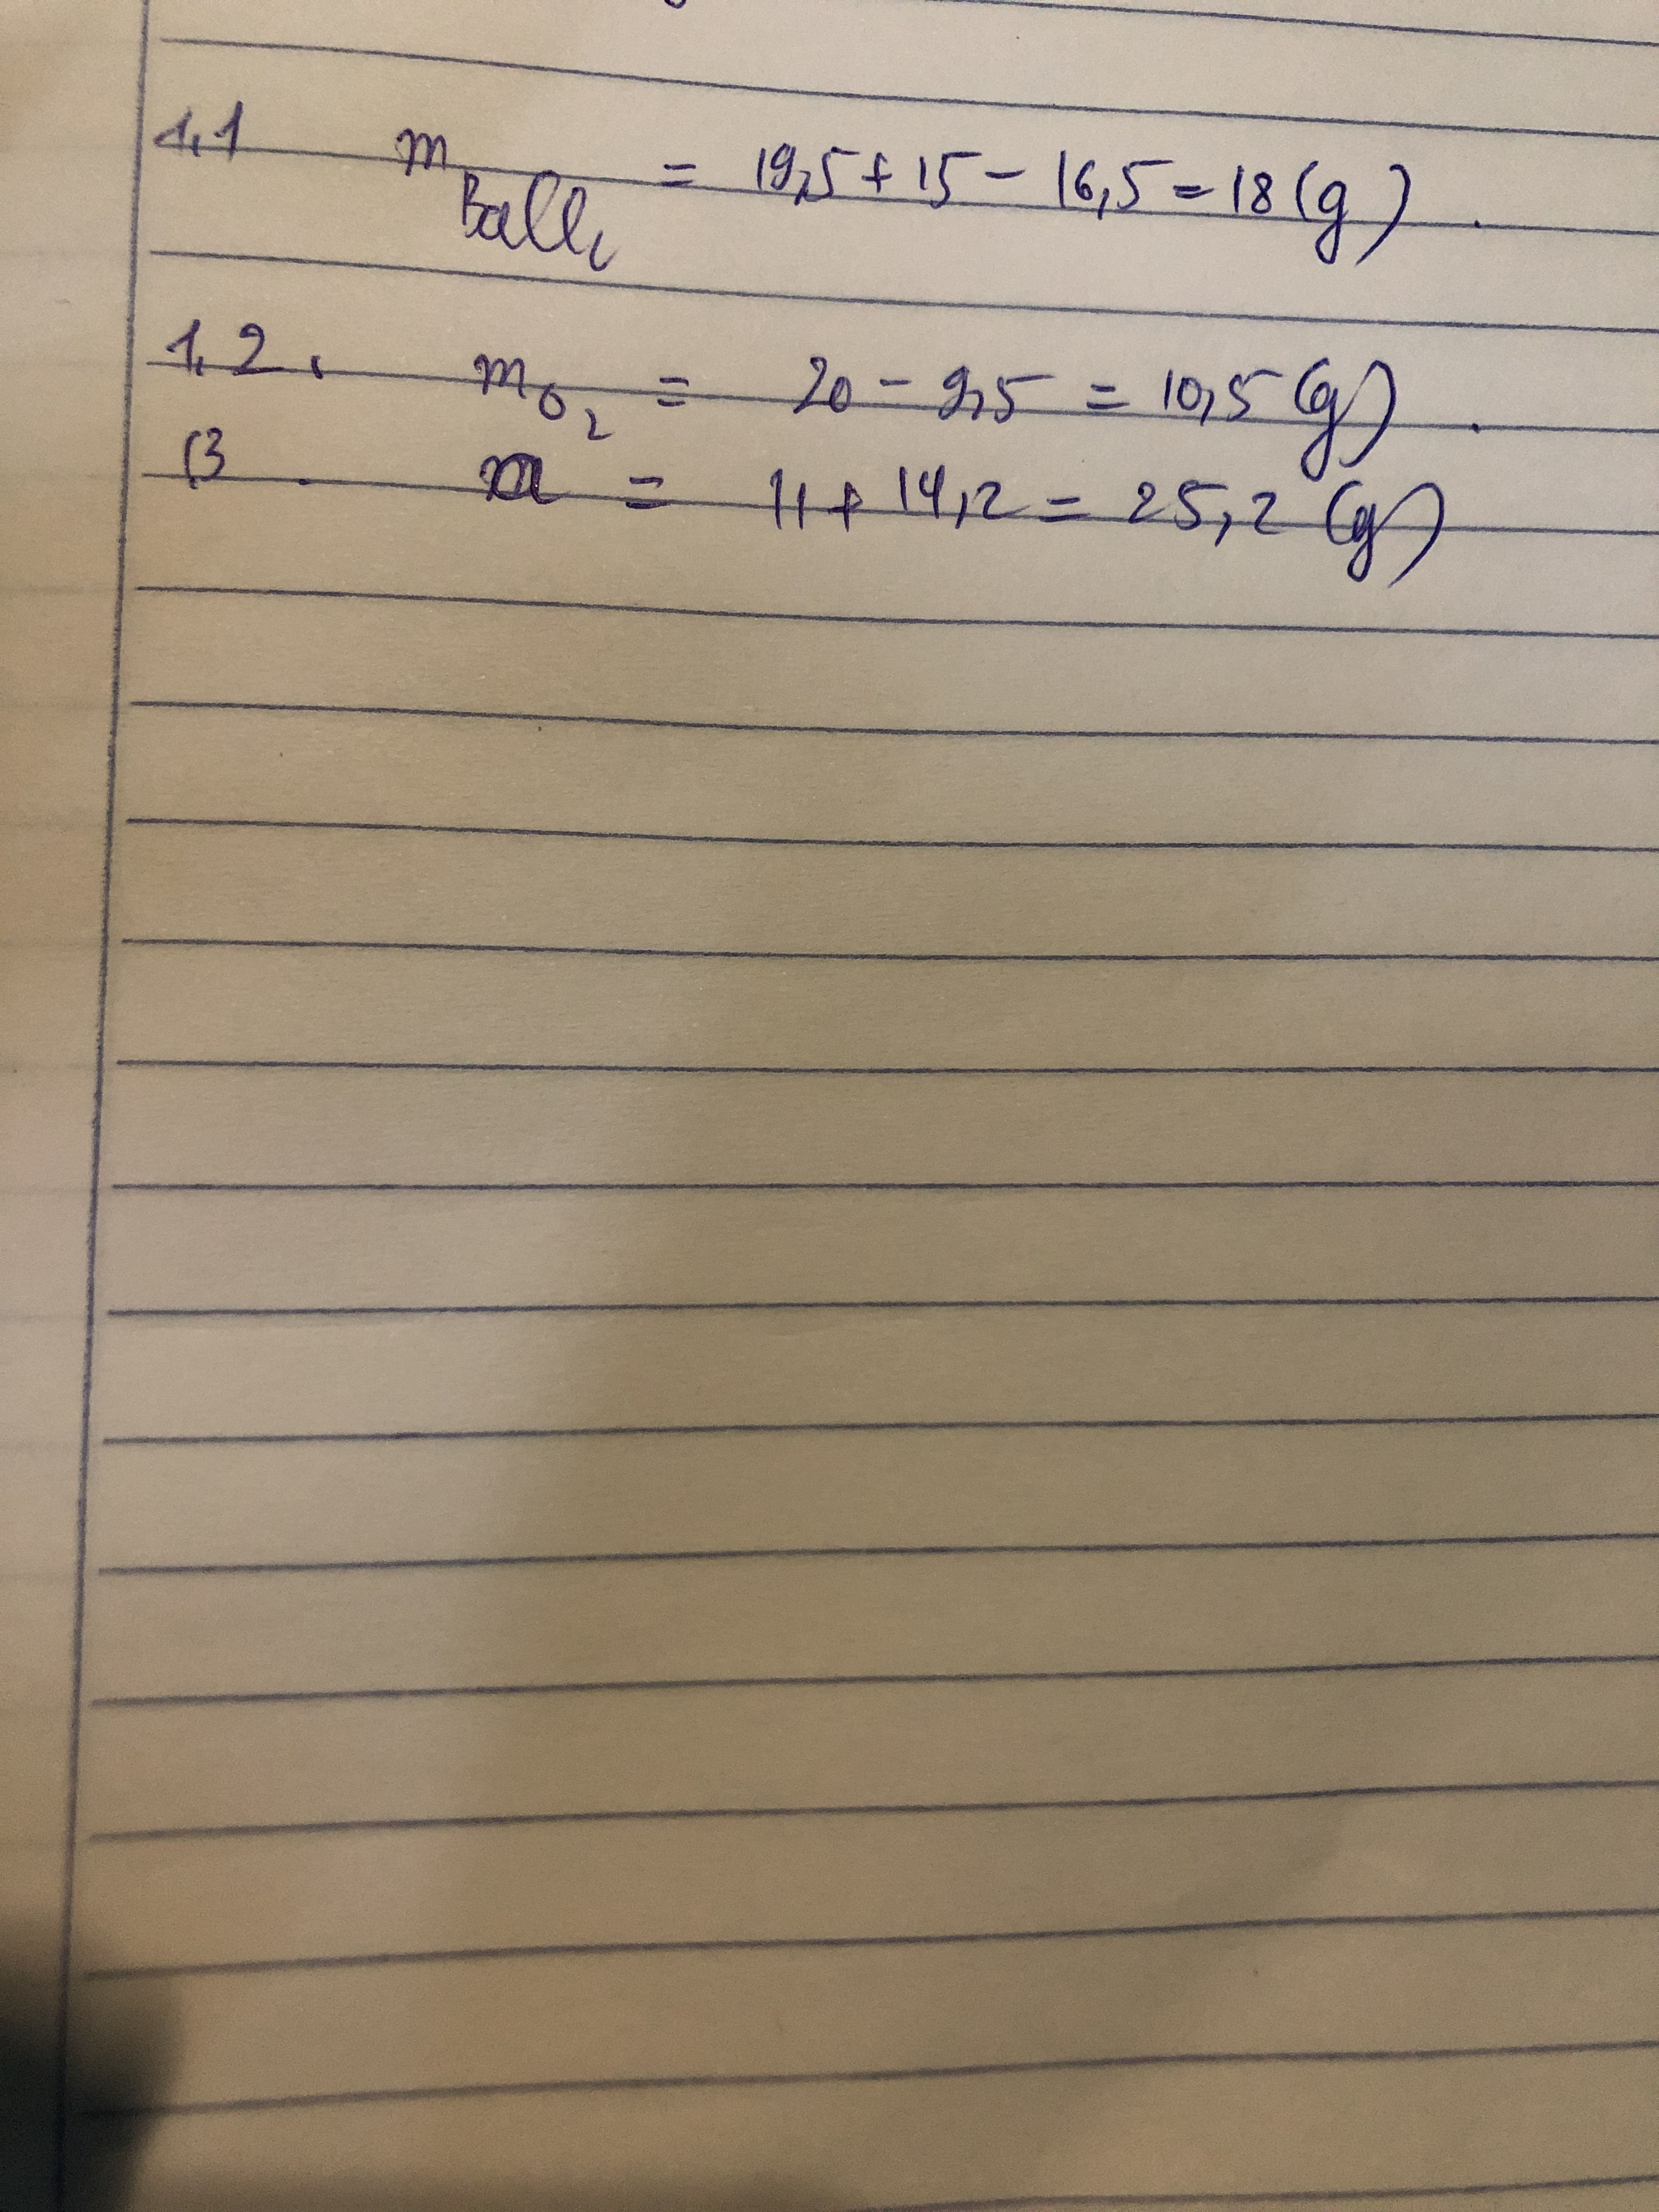 1,1 m Ball₂ = 19,5 + 15 - 16,5 = 18 (g) .
1,2 . mO₂ = 20 - 9,5 = 10,5 (g) .
13 . m = 11 + 14,2 = 25,2 (g)